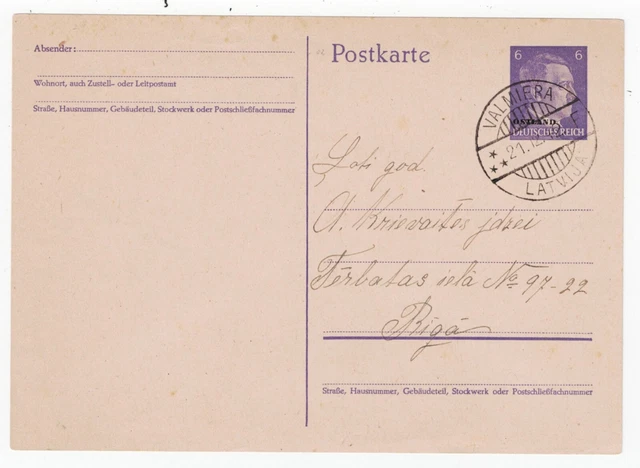 Absender:
Wohnort, auch Zustell- oder Leitpostamt
Straße, Hausnummer, Gebäudeteil, Stockwerk oder Postschließfachnummer
Postkarte
6 6
OSTLAND
DEUTSCHES REICH
VALMIERA
21.12.
LATVIJA
Ļoti god.
A. Krievaitės jdzei
Tērbatas ielā No 97-22
Rīgā
Straße, Hausnummer, Gebäudeteil, Stockwerk oder Postschließfachnummer